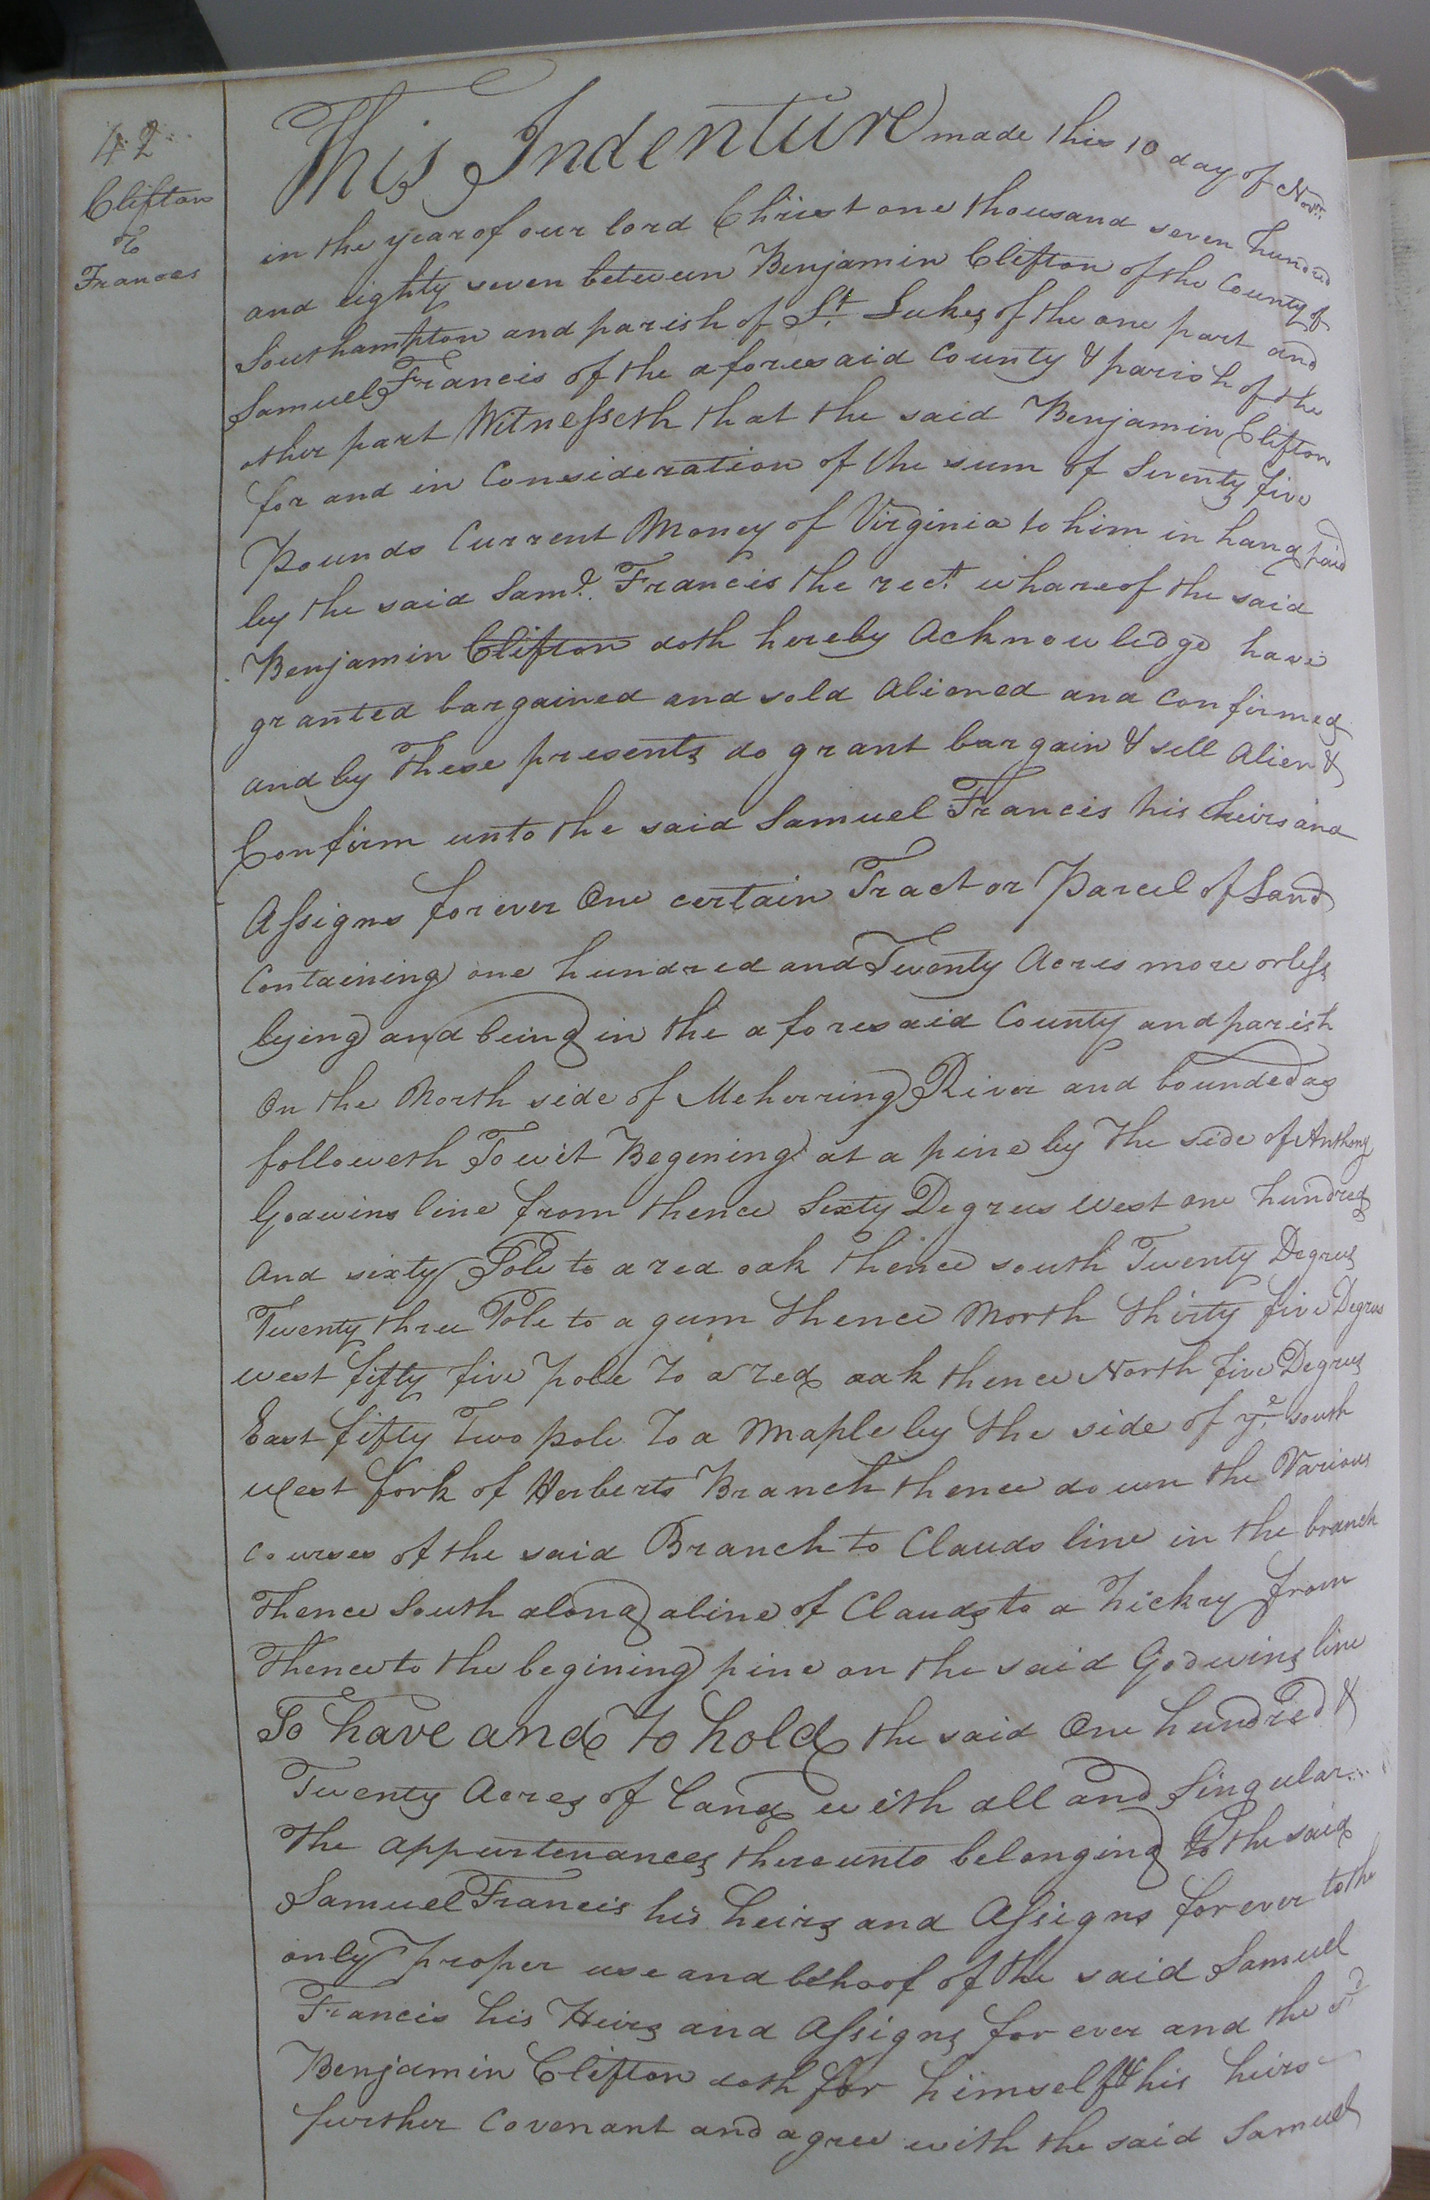 42
Clifton
To
Frances
This Indenture made this 10 day of Novr.
in the year of our lord Christ one thousand seven hundred
and eighty seven between Benjamin Clifton of the County of
Southampton and parish of St. Lukes of the one part and
Samuel Francis of the aforesaid County & parish of the
other part Witnesseth that the said Benjamin Clifton
for and in Consideration of the sum of Seventy five
Pounds Current Money of Virginia to him in hand paid
by the said Saml. Francis the rect. whareof the said
Benjamin Clifton doth hereby Acknowledge have
granted bargained and sold Aliened and confirmed
and by These presents do grant bargain & sell Alien &
Confirm unto the said Samuel Francis his heirs and
Assigns forever One certain Tract or Parcel of Land
Containing one hundred and Twenty Acres more or less
lying and being in the aforesaid County and parish
On the North side of Meherring River and bounded as
followeth To wit Begening at a pine by the side of Anthony
Godwins line from thence Sixty Degrees West one hundred
And sixty Pole to a red oak thence south Twenty Degrees
Twenty three Pole to a gum thence North thirty five Degrees
west fifty five pole to a red oak thence North five Degrees
East fifty Two pole To a Maple by the side of ye. south
West fork of Herberts Branch thence down the Various
Courses of the said Branch to Clauds line in the branch
Thence South along a line of Clauds to a hickry from
Thence to the begining pine on the said Godwins line
To have and to hold the said One hundred &
Twenty Acres of Land with all and Singular
The appurtenances thereunto belonging to the said
Samuel Francis his heirs and Assigns forever to the
only proper use and behoof of the said Samuel
Francis his Heirs and Assigns for ever and the sd.
Benjamin Clifton doth for himself & his heirs
further Covenant and agree with the said Samuel